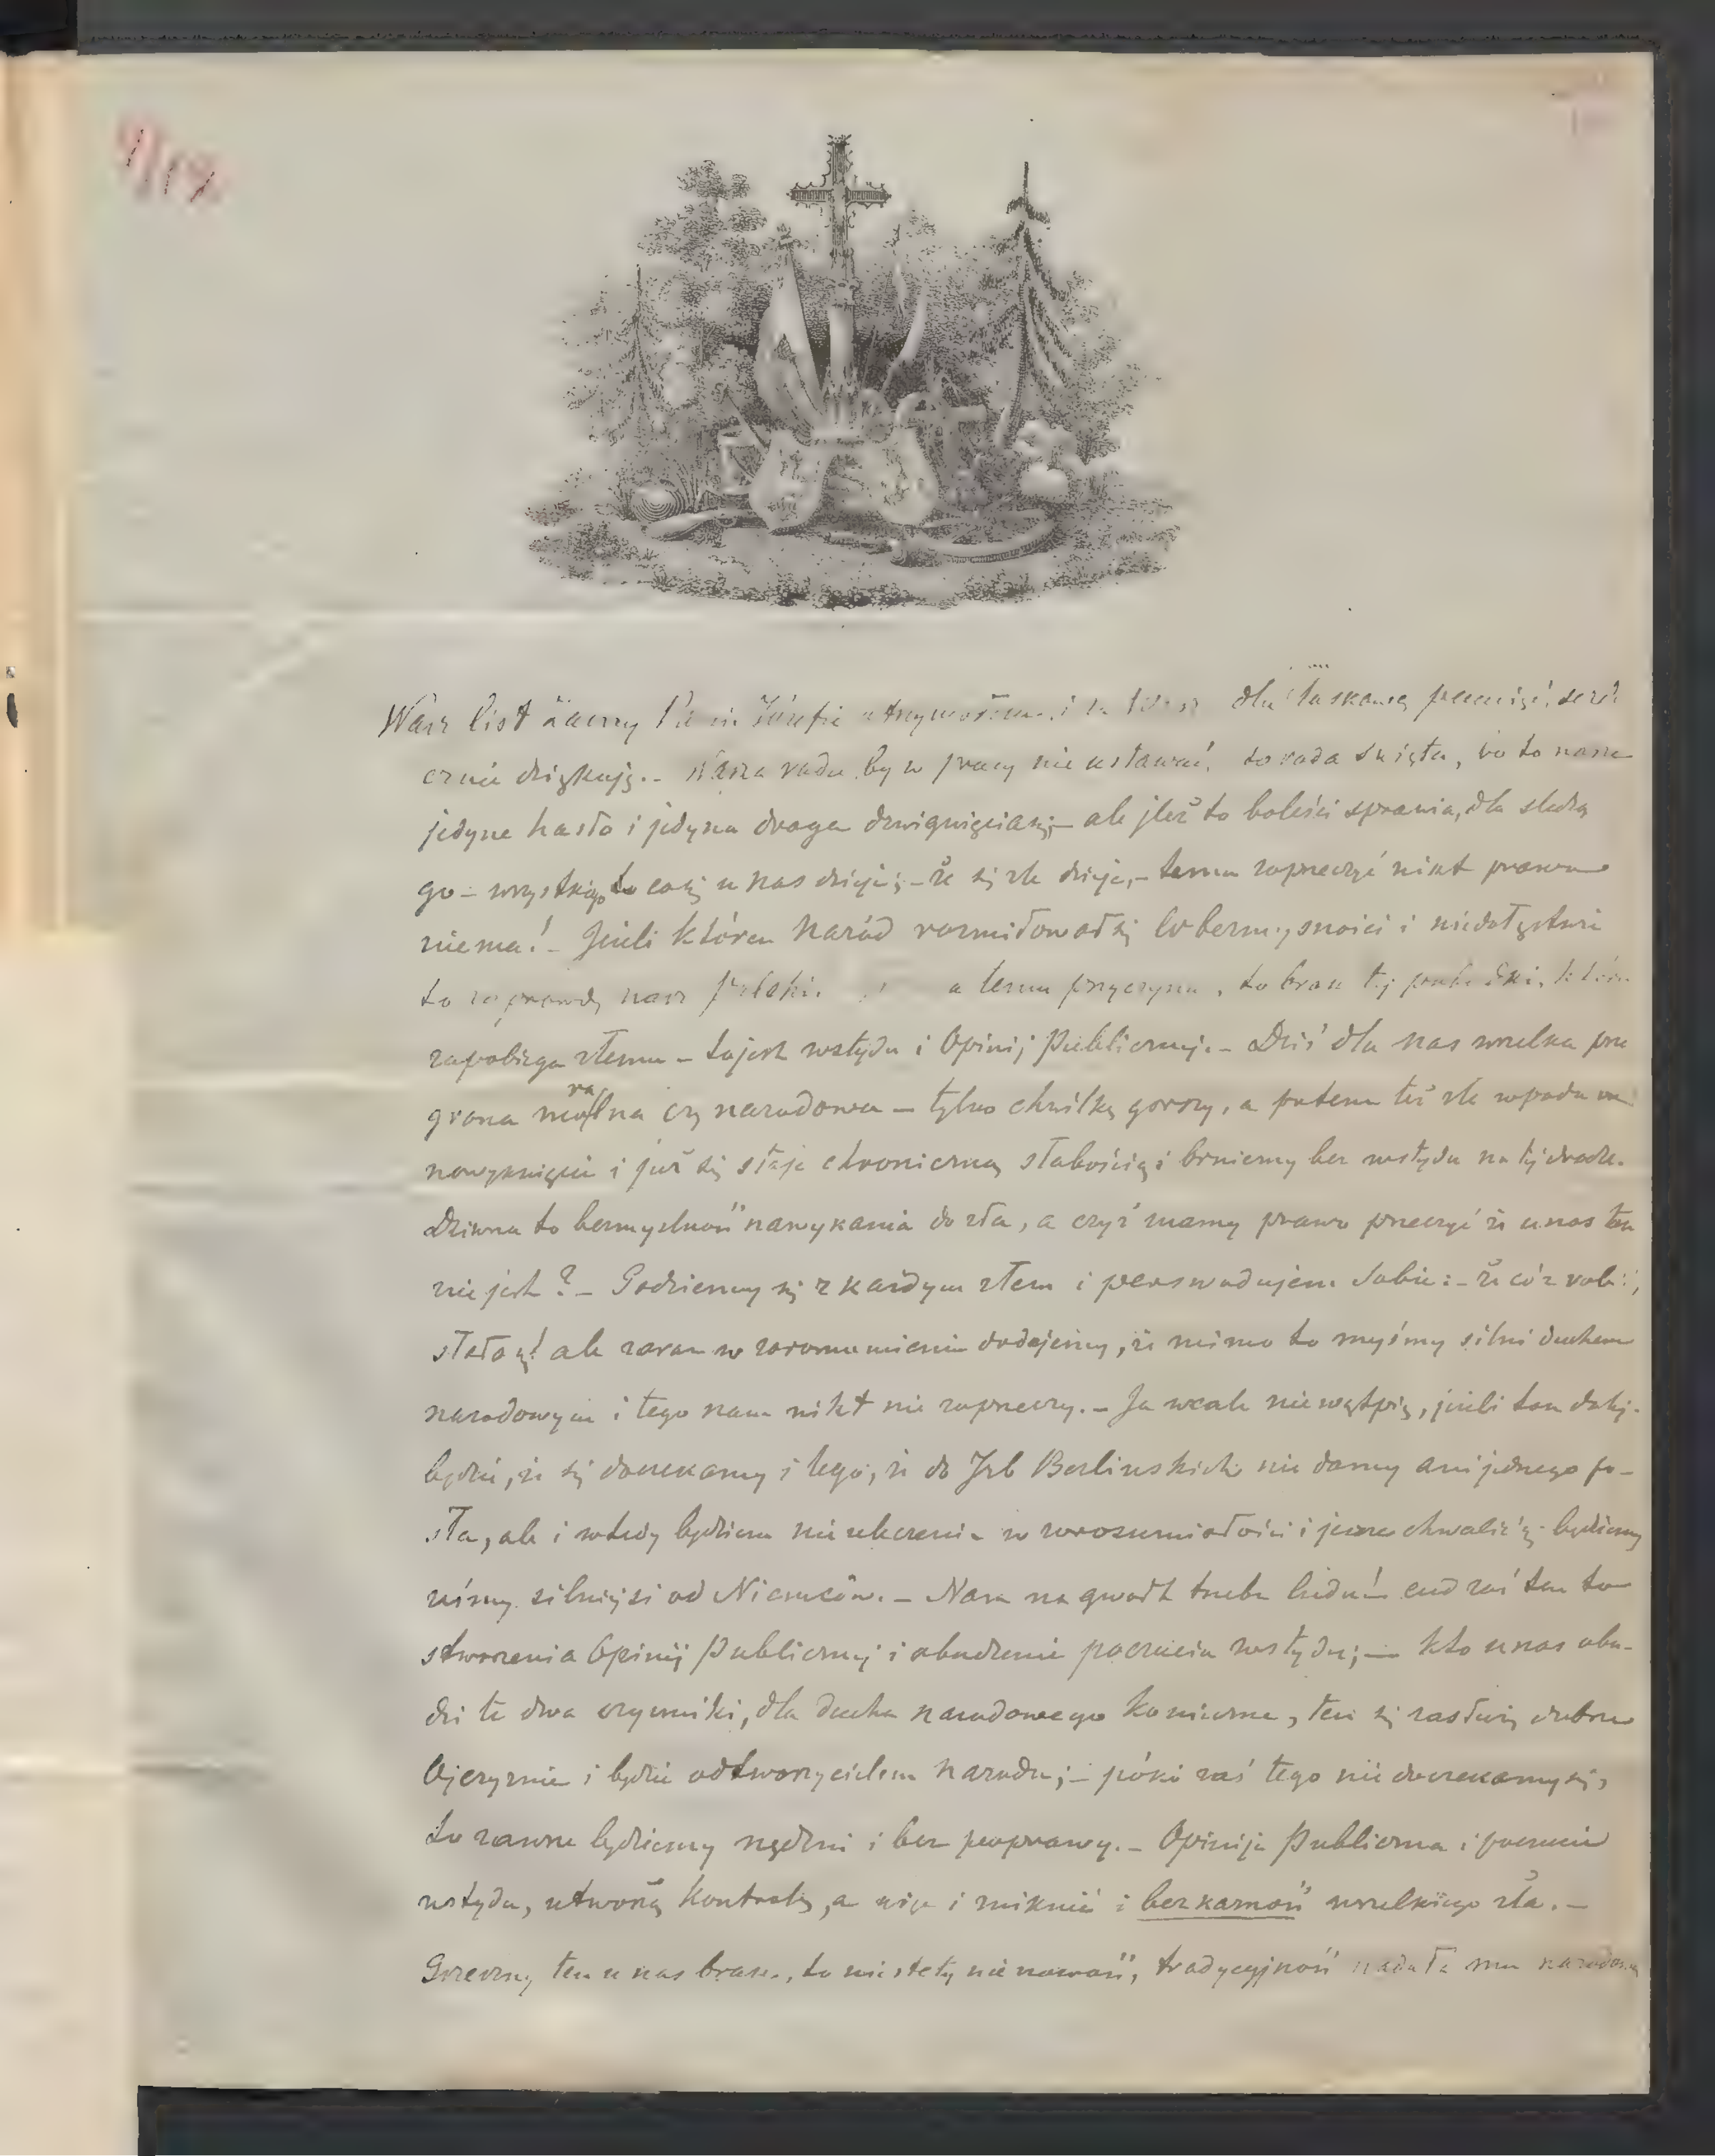 Wasz list zacny Panie Józefie otrzymałem i za łaskawą pamięć, serde
cznie dziękuję. – Wasza rada by w pracy nie ustawać, to rada święta, bo to nasze
jedyne hasło i jedyna droga dzwignięcia się – ale jleż to boleści sprawia, dla śledzą
go – wszystkiego co się u nas dzieje; – że się źle dzieje, – temu zaprzeczyć nikt prawa
niema! – Jeżeli któren Naród rozmiłował się w bezmyślności i niedołęstwie
to zaprawdę nasz Polski. a temu przyczyna, to brak tej
zapobiega złemu – to jest wstydu i Opinij Publicznej. – Dziś dla nas wszelka prze
grana moralna czy narodowa – tylko chwilkę gorszy, a potem też złe wpada w
nawyknięcie i już się staje chroniczną słabością i brniemy bez wstydu na tej drodze.
Dziwna to bezmyślność nawykania do zła, a czyż mamy prawo przeczyć że u nas tak
nie jest? – Godziemy się z każdym złem i perswadujem Sobie: – że cóż robić,
stało się! ale zaraz w zarozumieniu dodajemy, że mimo to myśmy silni duchem
narodowym i tego nam nikt nie zaprzeczy. – Ja wcale nie wątpię, jeżeli tak dalej
będzie, że się doczekamy i tego, że do Jzb Berlinskich nie damy ani jednego po–
sła, ale i wtedy będziem nieuleczeni w zarozumiałości i jeszcze chwalić się będziemy
żeśmy silniejsi od Niemców. – Nam na gwałt trzeba cudu! cud zaś ten to
stworzenia Opinij Publicznej i obudzenie poczucia wstydu; – kto u nas obu–
dzi te dwa czynniki, dla ducha narodowego konieczne, ten się zasłuży dobrze
Ojczyznie i będzie odtworzycielem narodu; – póki zaś tego nie doczekamy się,
to zawsze będziemy nędzni i bez poprawy. – Opinija Publiczna i poczucie
wstydu, utworzą kontrolę, a z nią i zniknie i bezkarność wszelkiego zła. –
Grzeczny ten u nas brak, to niestety nie nowość, tradycyjność nadała mu narodową